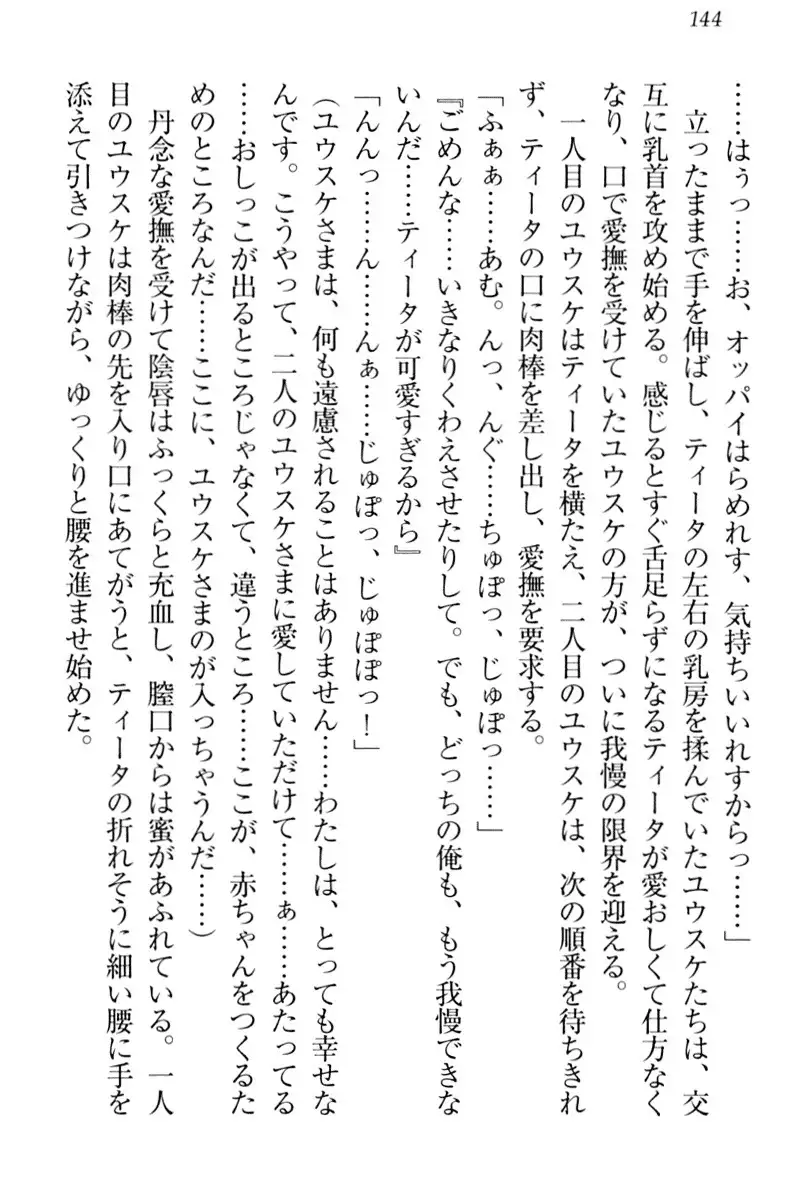 144
……はぅっ……お、オッパイはらめれす、気持ちいいれすからっ……」
　立ったままで手を伸ばし、ティータの左右の乳房を揉んでいたユウスケたちは、交
互に乳首を攻め始める。感じるとすぐ舌足らずになるティータが愛おしくて仕方なく
なり、口で愛撫を受けていたユウスケの方が、ついに我慢の限界を迎える。
　一人目のユウスケはティータを横たえ、二人目のユウスケは、次の順番を待ちきれ
ず、ティータの口に肉棒を差し出し、愛撫を要求する。
「ふぁぁ……あむ。んっ、んぐ……ちゅぽっ、じゅぽっ……」
『ごめんな……いきなりくわえさせたりして。でも、どっちの俺も、もう我慢できな
いんだ……ティータが可愛すぎるから』
「んんっ……ん……んぁ……じゅぽっ、じゅぽぽっ！」
（ユウスケさまは、何も遠慮されることはありません……わたしは、とっても幸せな
んです。こうやって、二人のユウスケさまに愛していただけて……ぁ……あたってる
……おしっこが出るところじゃなくて、違うところ……ここが、赤ちゃんをつくるた
めのところなんだ……ここに、ユウスケさまのが入っちゃうんだ……）
　丹念な愛撫を受けて陰唇はふっくらと充血し、膣口からは蜜があふれている。一人
目のユウスケは肉棒の先を入り口にあてがうと、ティータの折れそうに細い腰に手を
添えて引きつけながら、ゆっくりと腰を進ませ始めた。